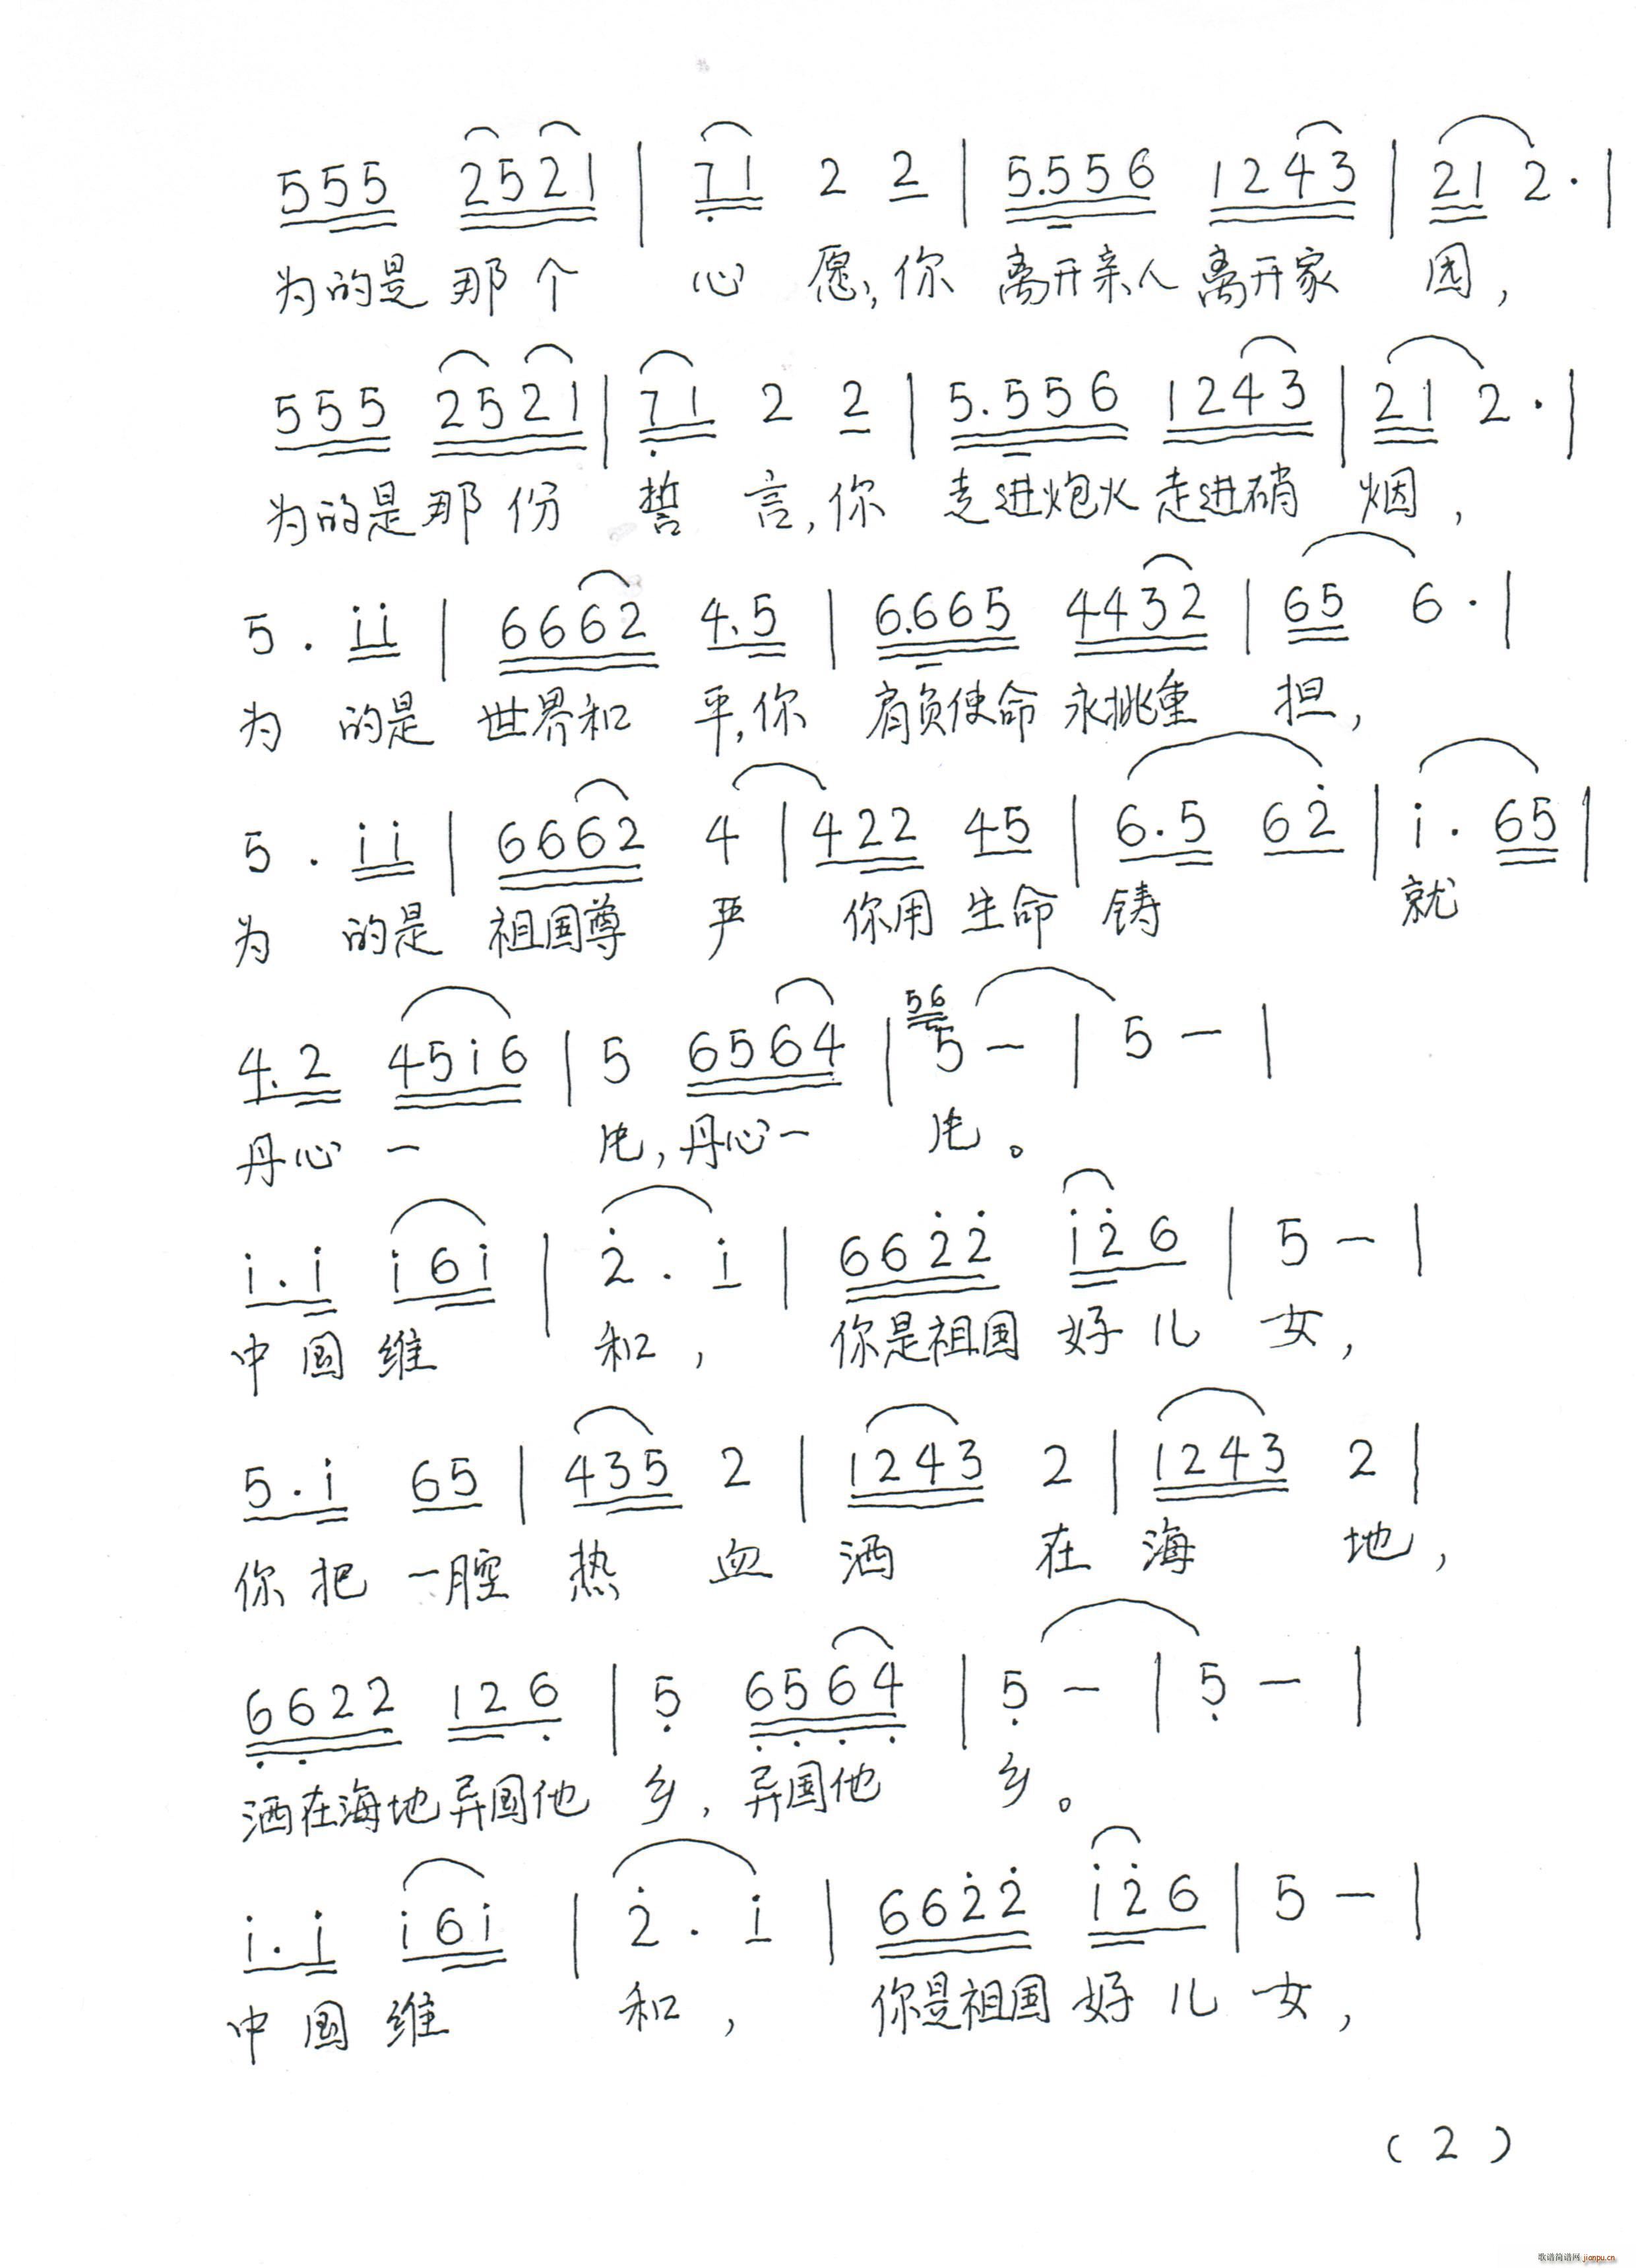 555 2521 | 71 2 2 | 5.556 1243 | 21 2. |
为的是 那个 心 愿,你 离开亲人 离开家 园,
555 2521 | 71 2 2 | 5.556 1243 | 21 2. |
为的是那份 誓 言,你 走进炮火 走进硝 烟,
5. i̇i̇ | 6662 4.5 | 6.665 4432 | 65 6. |
为 的是 世界和 平,你 肩负使命 永挑重 担,
5. i̇i̇ | 6662 4 | 422 45 | 6.5 62̇ | i̇. 65 |
为 的是 祖国尊 严 你用 生命 铸 就
4.2 45i̇6 | 5 6564 | 56 5 — | 5 — |
丹心 一 片,丹心一 片。
i̇.i̇ i̇6i̇ | 2̇. i̇ | 662̇2̇ i̇2̇6 | 5 — |
中国 维 和, 你是祖国 好儿 女,
5.i̇ 65 | 435 2 | 1243 2 | 1243 2 |
你把 一腔 热 血 洒 在 海 地,
6̣6̣22 126̣ | 5̣ 6̣5̣6̣4̣ | 5̣ — | 5̣ — |
洒在海地异国他 乡,异国他 乡。
i̇.i̇ i̇6i̇ | 2̇. i̇ | 662̇2̇ i̇2̇6 | 5 — |
中国 维 和, 你是祖国 好儿 女,
(2)
歌谱简谱网 jianpu.cn